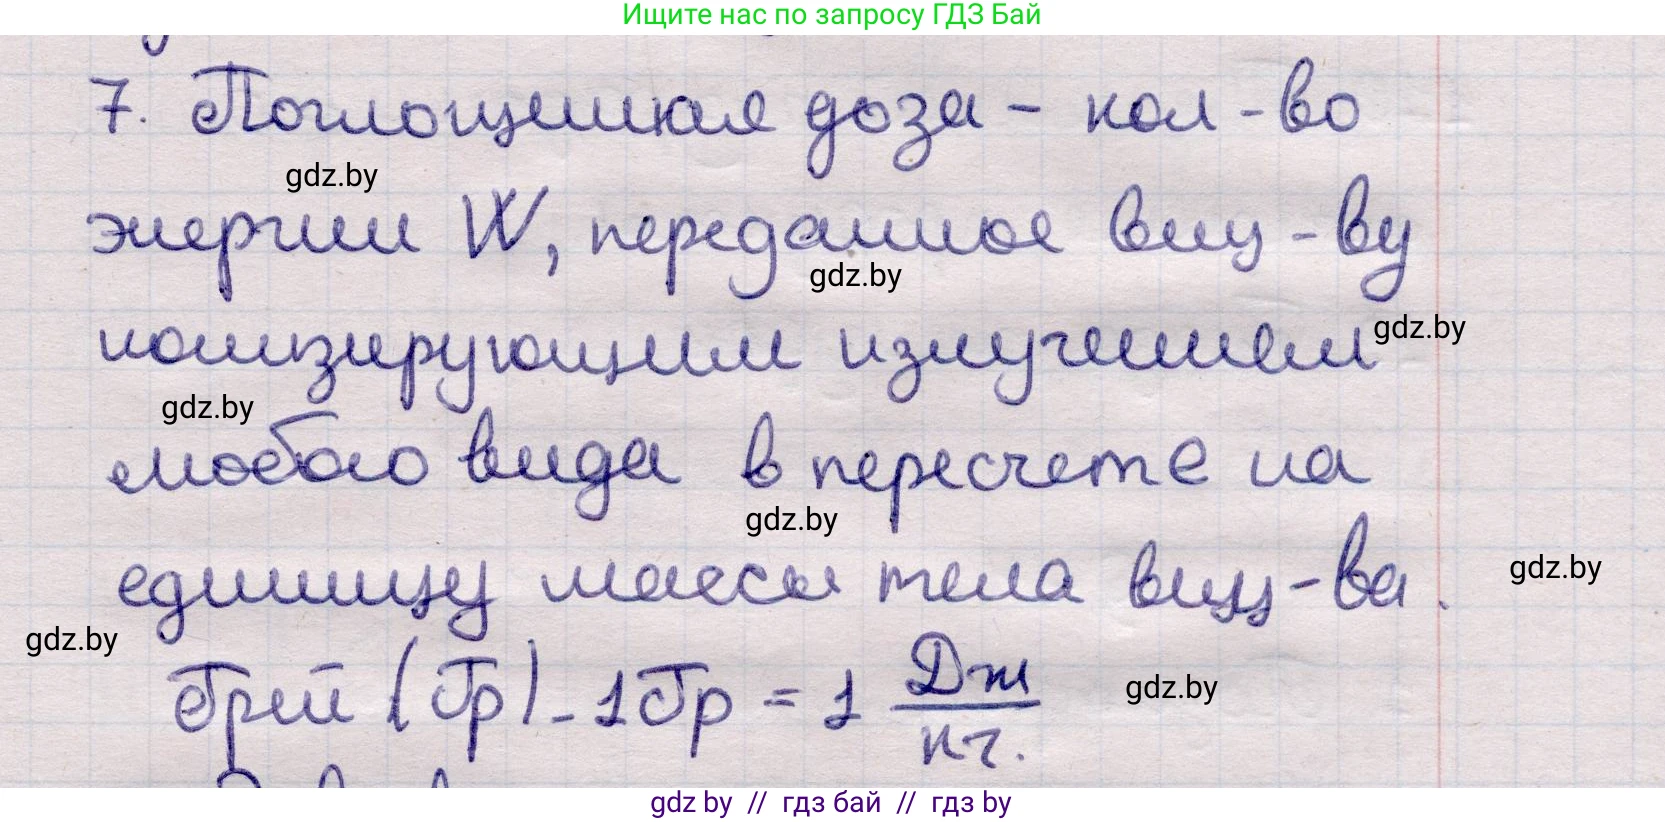 Ищите нас по запросу ГДЗ Бай
7. Поглощенная доза - кол-во
gdz.by
энергии W, переданное вещ-ву
gdz.by
ионизирующим излучением
gdz.by
gdz.by
любого вида в пересчете на
gdz.by
единицу массы тела вещ-ва.
gdz.by
gdz.by
Грей (Гр) - 1 Гр = 1 Дж/кг.
gdz.by
gdz by // гдз бай // гдз by